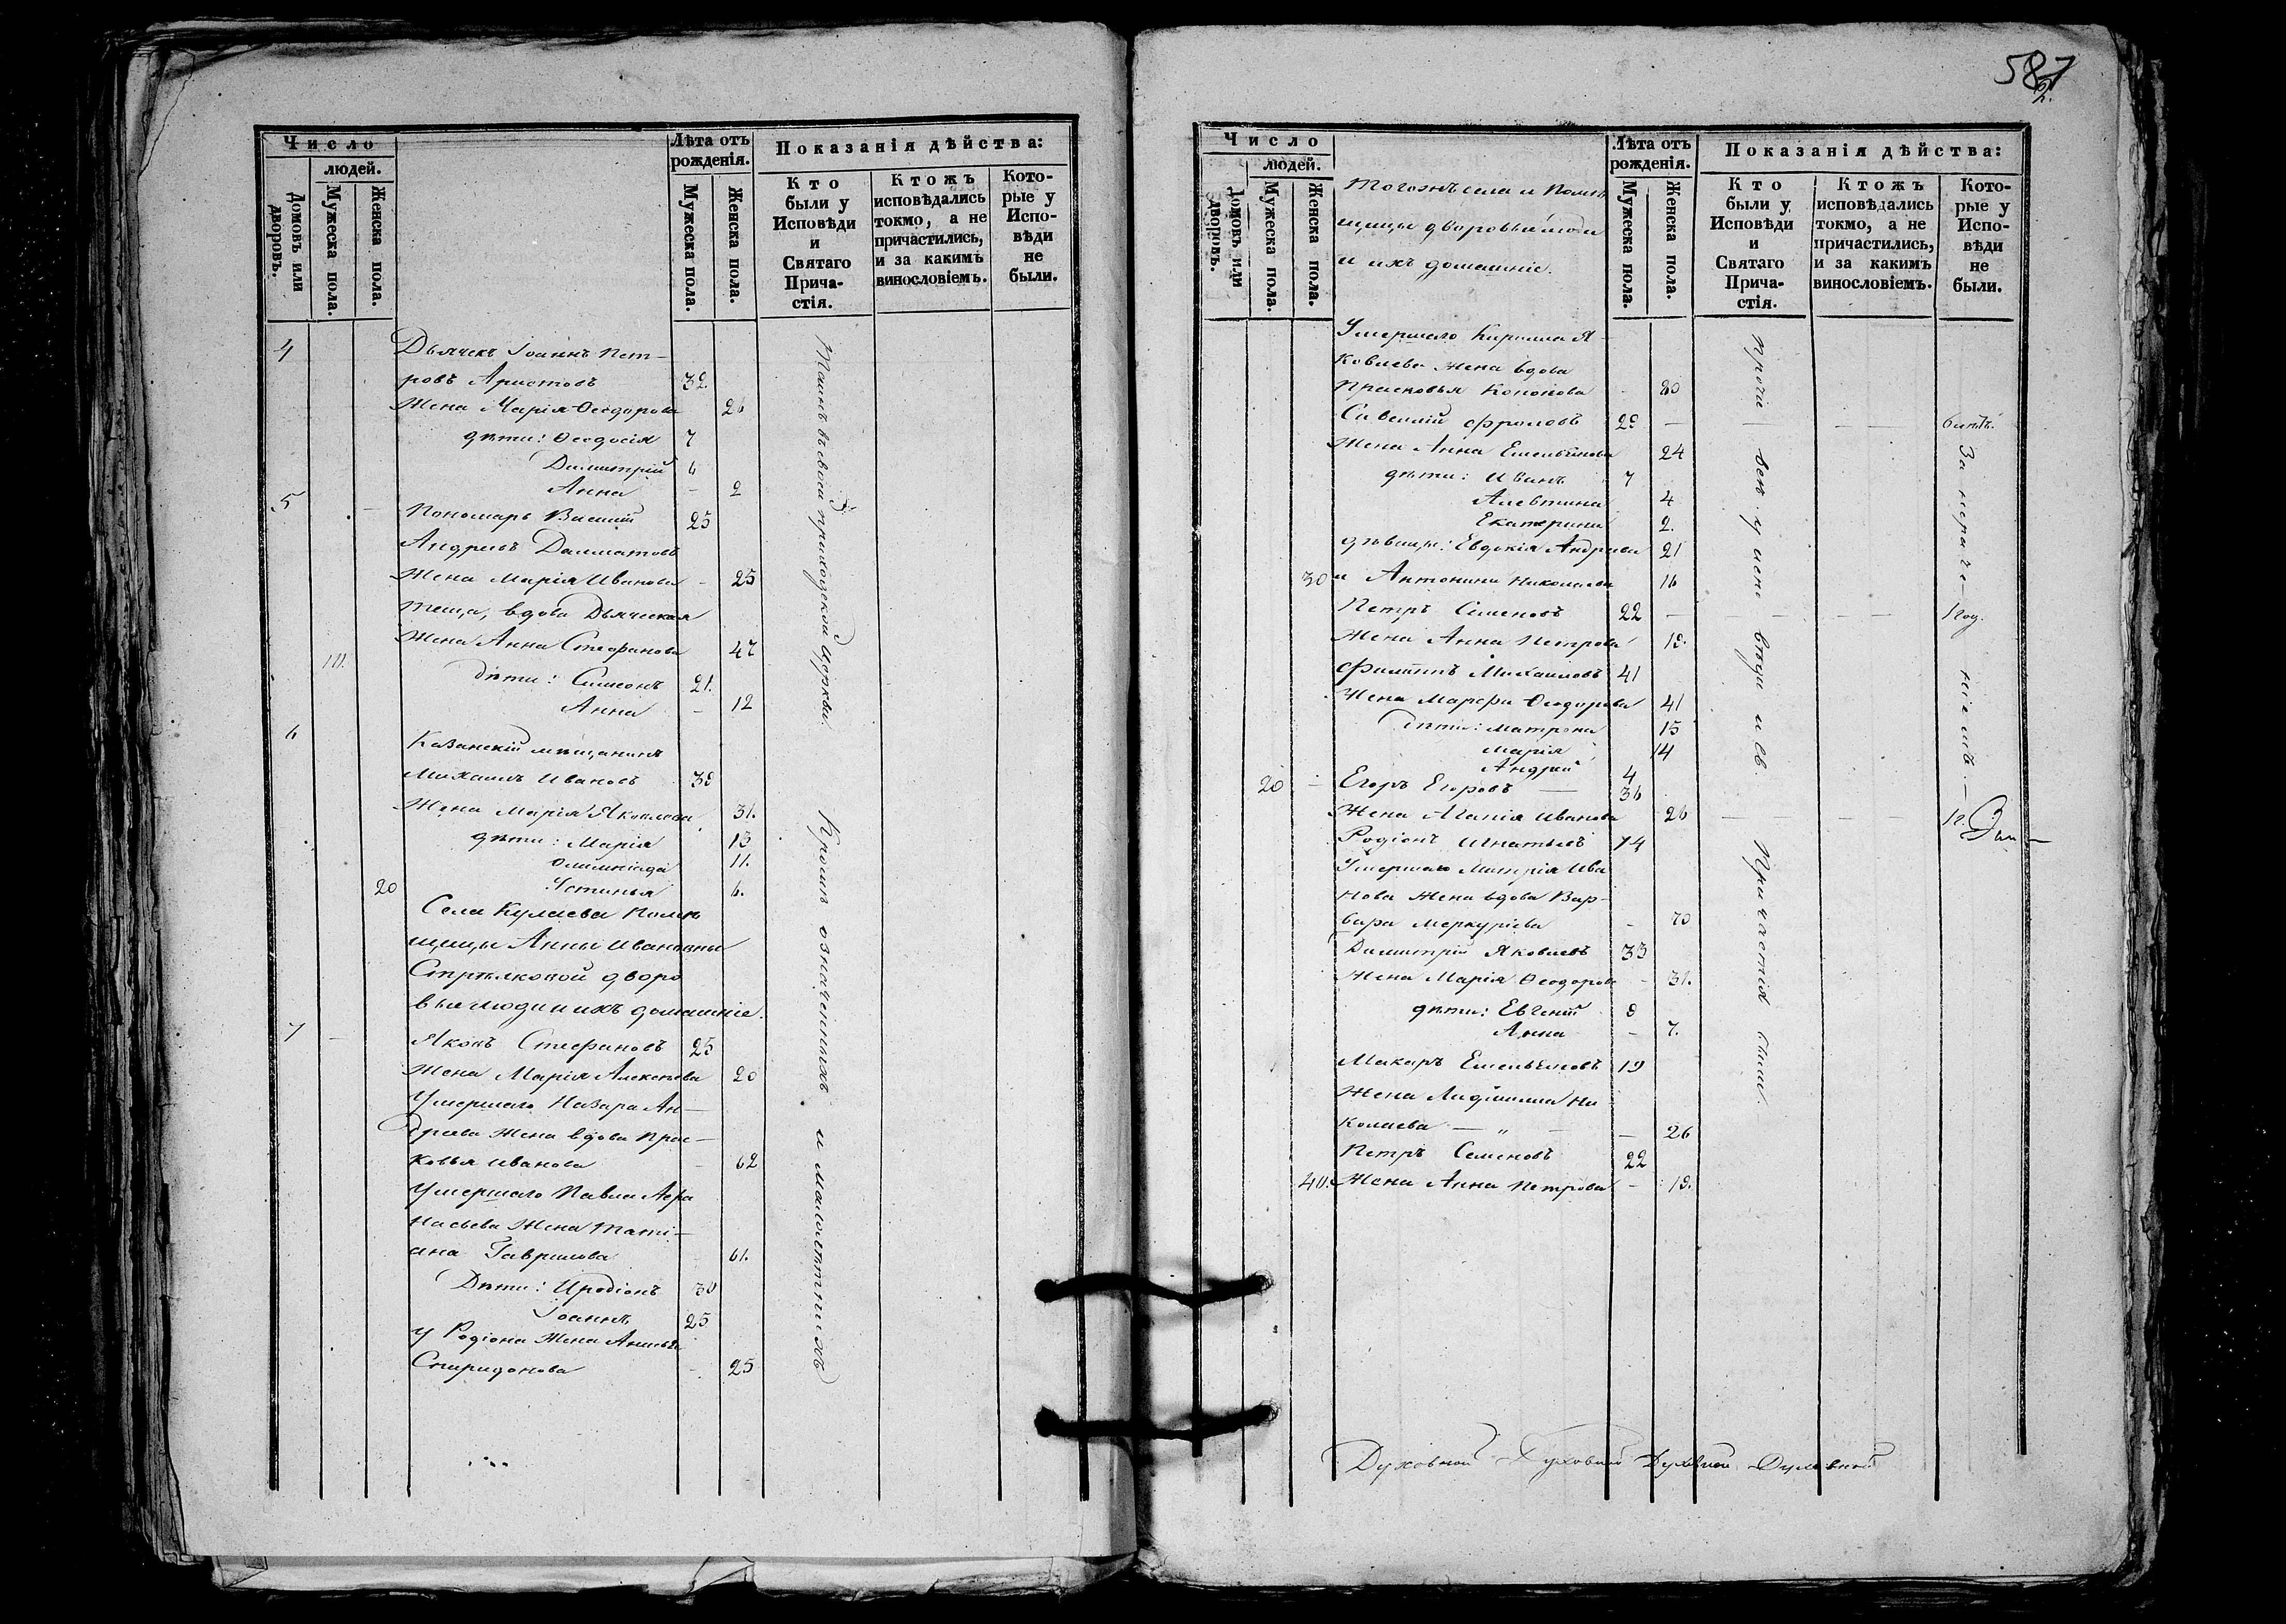 Число
людей.
Домовъ или дворовъ.
Мужеска пола.
Женска пола.
Лѣта отъ рожденія.
Мужеска пола.
Женска пола.
Показанія дѣйства:
Кто были у Исповѣди и Святаго Прича-стія.
Ктожъ исповѣдались токмо, а не причастились, и за какимъ винословіемъ.
Кото-рые у Испо-вѣди не были.
4 Дьячекъ Іоаннъ Пет-
ровъ Аристовъ 32
Жена Марія Ѳеодорова 26
дѣти: Ѳеодосія 7
Димитрій 6
Анна - 2
5 Пономарь Василій 25
Андреевъ Далматовъ
Жена Марія Иванова - 25
теща, вдова Дьяческая
Жена Анна Стефанова 47
10. дѣти: Симеонъ 21.
Анна - 12
6 Казанскій мѣщанинъ
Михаилъ Ивановъ 39
Жена Марія Яковлева 31.
дѣти: Марія 13
Олимпіада 11.
20 Устинья 6.
Села Кулаева Помѣ
щицы Анны Ивановны
Стрѣлковой дворо
выя люди и ихъ домашніе.
7 - Яковъ Стефановъ 25
Жена Марія Алексѣева 20
Умершаго Назара Ан-
дреева Жена вдова Прас-
ковья Иванова - 62
Умершаго Павла Аѳа
насьева Жена Тати-
ана Гаврилова 61.
Дѣти: Иродіонъ 30
Іоаннъ 25
У Родіона Жена Анисья
Спиридонова - 25
въ своей приходской Церкви.
Кромѣ означенныхъ и малолѣтнихъ
587
2.
Число
людей.
Домовъ или дворовъ.
Мужеска пола.
Женска пола.
Тогожъ села и Помѣ
щицы дворовые люди
и ихъ домашніе.
Лѣта отъ рожденія.
Мужеска пола.
Женска пола.
Показанія дѣйства:
Кто были у Исповѣди и Святаго Прича-стія.
Ктожъ исповѣдались токмо, а не причастились, и за какимъ винословіемъ.
Кото-рые у Испо-вѣди не были.
Умершаго Кирилла Я-
ковлева Жена вдова
Прасковья Кононова - 80
Савелій Фроловъ 29 -
Жена Анна Емельянова 24
дѣти: Иванъ 7
Алевтина 4
Екатерина 2.
дѣвицы: Евдокія Андреева 21
30 и Антонина Николаева 16
Петръ Семеновъ 22 -
Жена Анна Петрова 19.
Филиппъ Михаиловъ 41
Жена Марѳа Ѳеодорова 41
Дѣти: Матрона 15
Марія 14
Андрей 4
20 - Егоръ Егоровъ 36
Жена Агапія Иванова 26
Родіонъ Игнатьевъ 14
Умершаго Митрія Ива
нова Жена вдова Вар-
вара Меркуріева - 70
Димитрій Яковлевъ 33
Жена Марія Ѳеодорова - 31.
дѣти: Евгеній 9
Анна - 7.
Макаръ Емельяновъ 19
Жена Людмилла Ни
колаева - 26
Петръ Семеновъ 22
40. Жена Анна Петрова - 19.
Прочіе всѣ у исповѣди и св. Причастія были.
За нераченіемъ.
Духовной Духовной Духовной Духовной